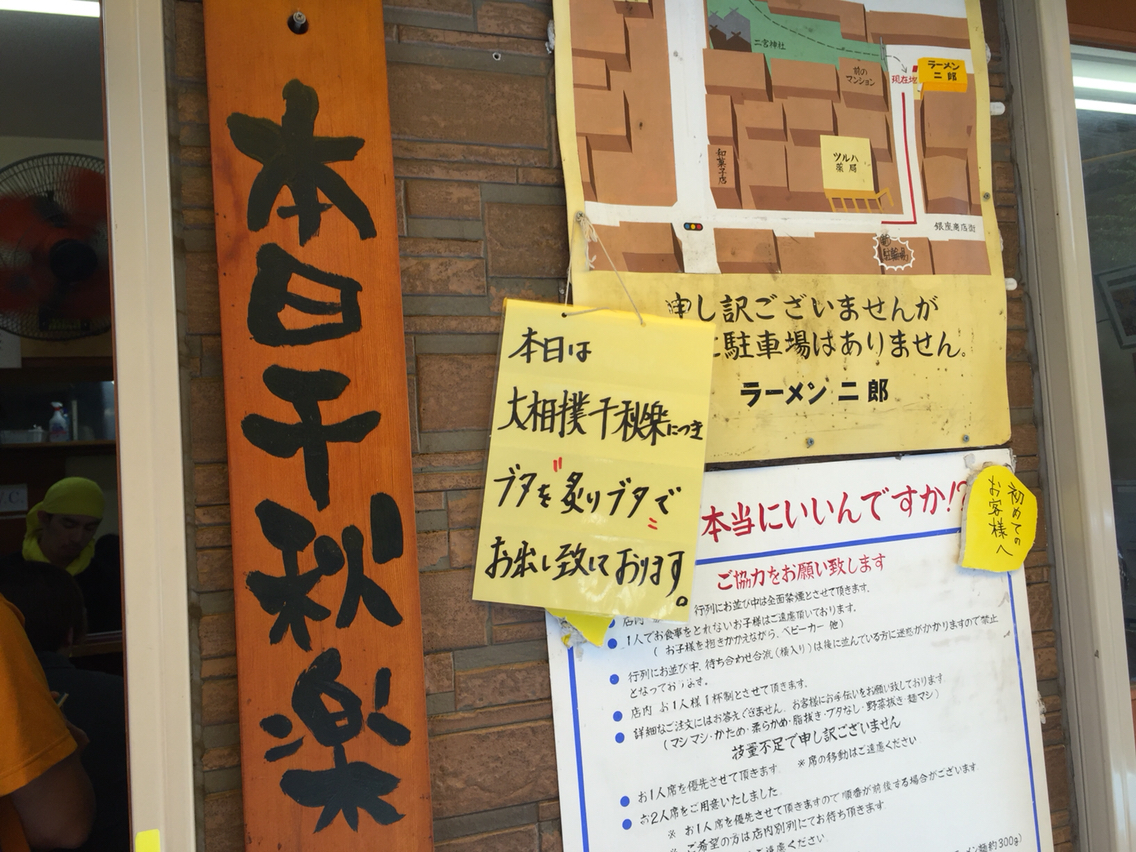 本日千秋楽
二宮神社
前の
マンション
現在地
ラーメン
二郎
和菓子店
ツルハ
薬局
銀座商店街
駐輪場
申し訳ございませんが
駐車場はありません。
ラーメン 二郎
本日は
大相撲千秋楽につき
ブタを"炙りブタ"で
お出し致しております。
本当にいいんですか!?
初めての
お客様へ
ご協力をお願い致します
店内 行列にお並び中は全面禁煙とさせて頂きます。
1人でお食事をとれないお子様はご遠慮頂いております。
( お子様を抱きかかえながら、ベビーカー 他)
行列にお並び中、待ち合わせ合流(横入り)は後に並んでいる方に迷惑がかかりますので禁止
となっております。
店内 お1人様1杯制とさせて頂きます。
詳細なご注文にはお答えできません。お客様にお手伝いをお願い致しております
(マシマシ・かため・柔らかめ・脂抜き・ブタなし・野菜抜き・麺マシ)
技量不足で申し訳ございません
お1人席を優先させて頂きます ※席の移動はご遠慮ください
お2人席をご用意いたしました
※ お1人席を優先させて頂きますので順番が前後する場合がございます
※ ご希望の方は店内別列にてお待ち頂きます
ご遠慮ください
ーメン麺約300g)